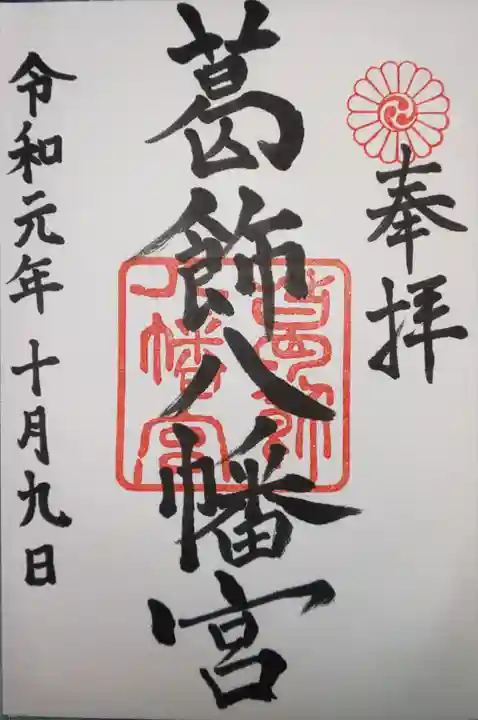 奉拝
葛飾八幡宮
葛飾八幡宮
令和元年十月九日